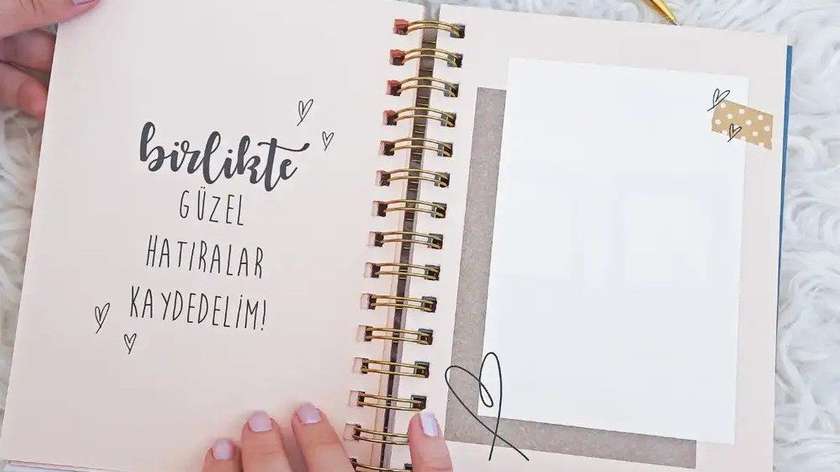 birlikte
GÜZEL
HATIRALAR
KAYDEDELİM!